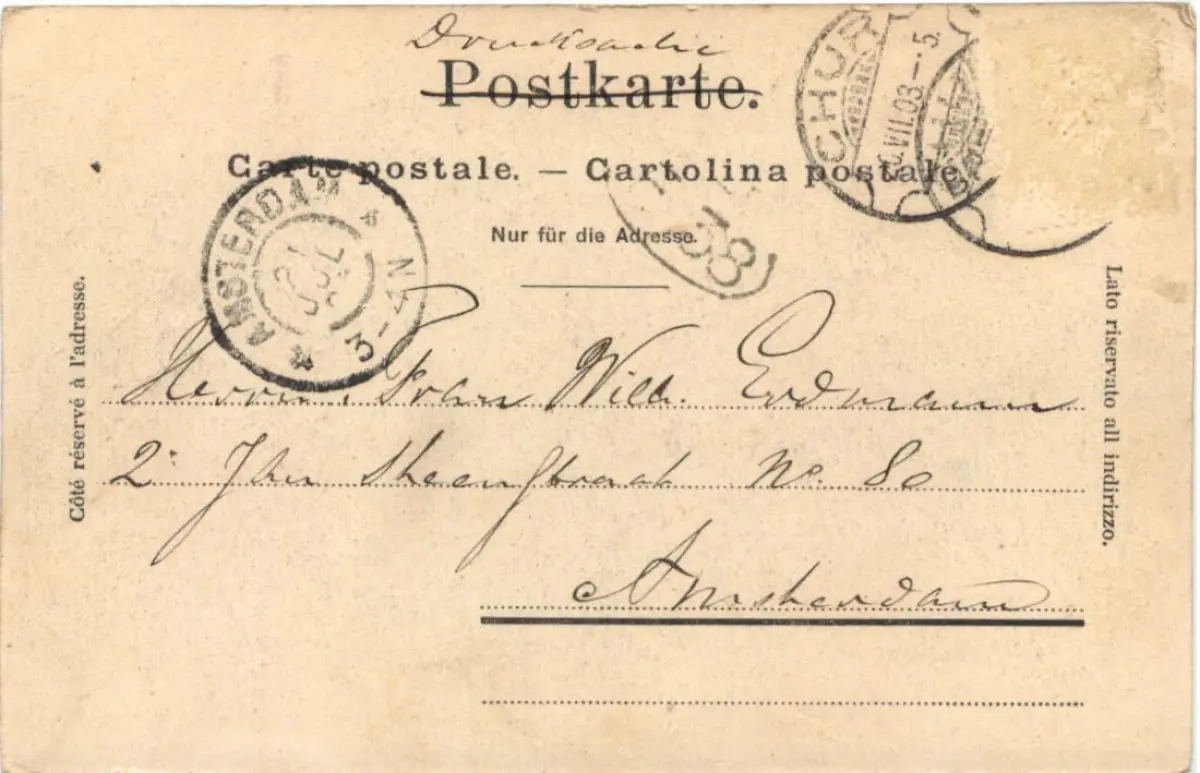 Drucksache
Postkarte.
Carte postale. — Cartolina postale.
Nur für die Adresse.
CHUR
VII.03–5
AMSTERDAM
3-4N
JUL
38
Côté réservé à l'adresse.
Lato riservato all indirizzo.
Herrn Will. Erdmann
2e Jan Steenstraat No. 80
Amsterdam